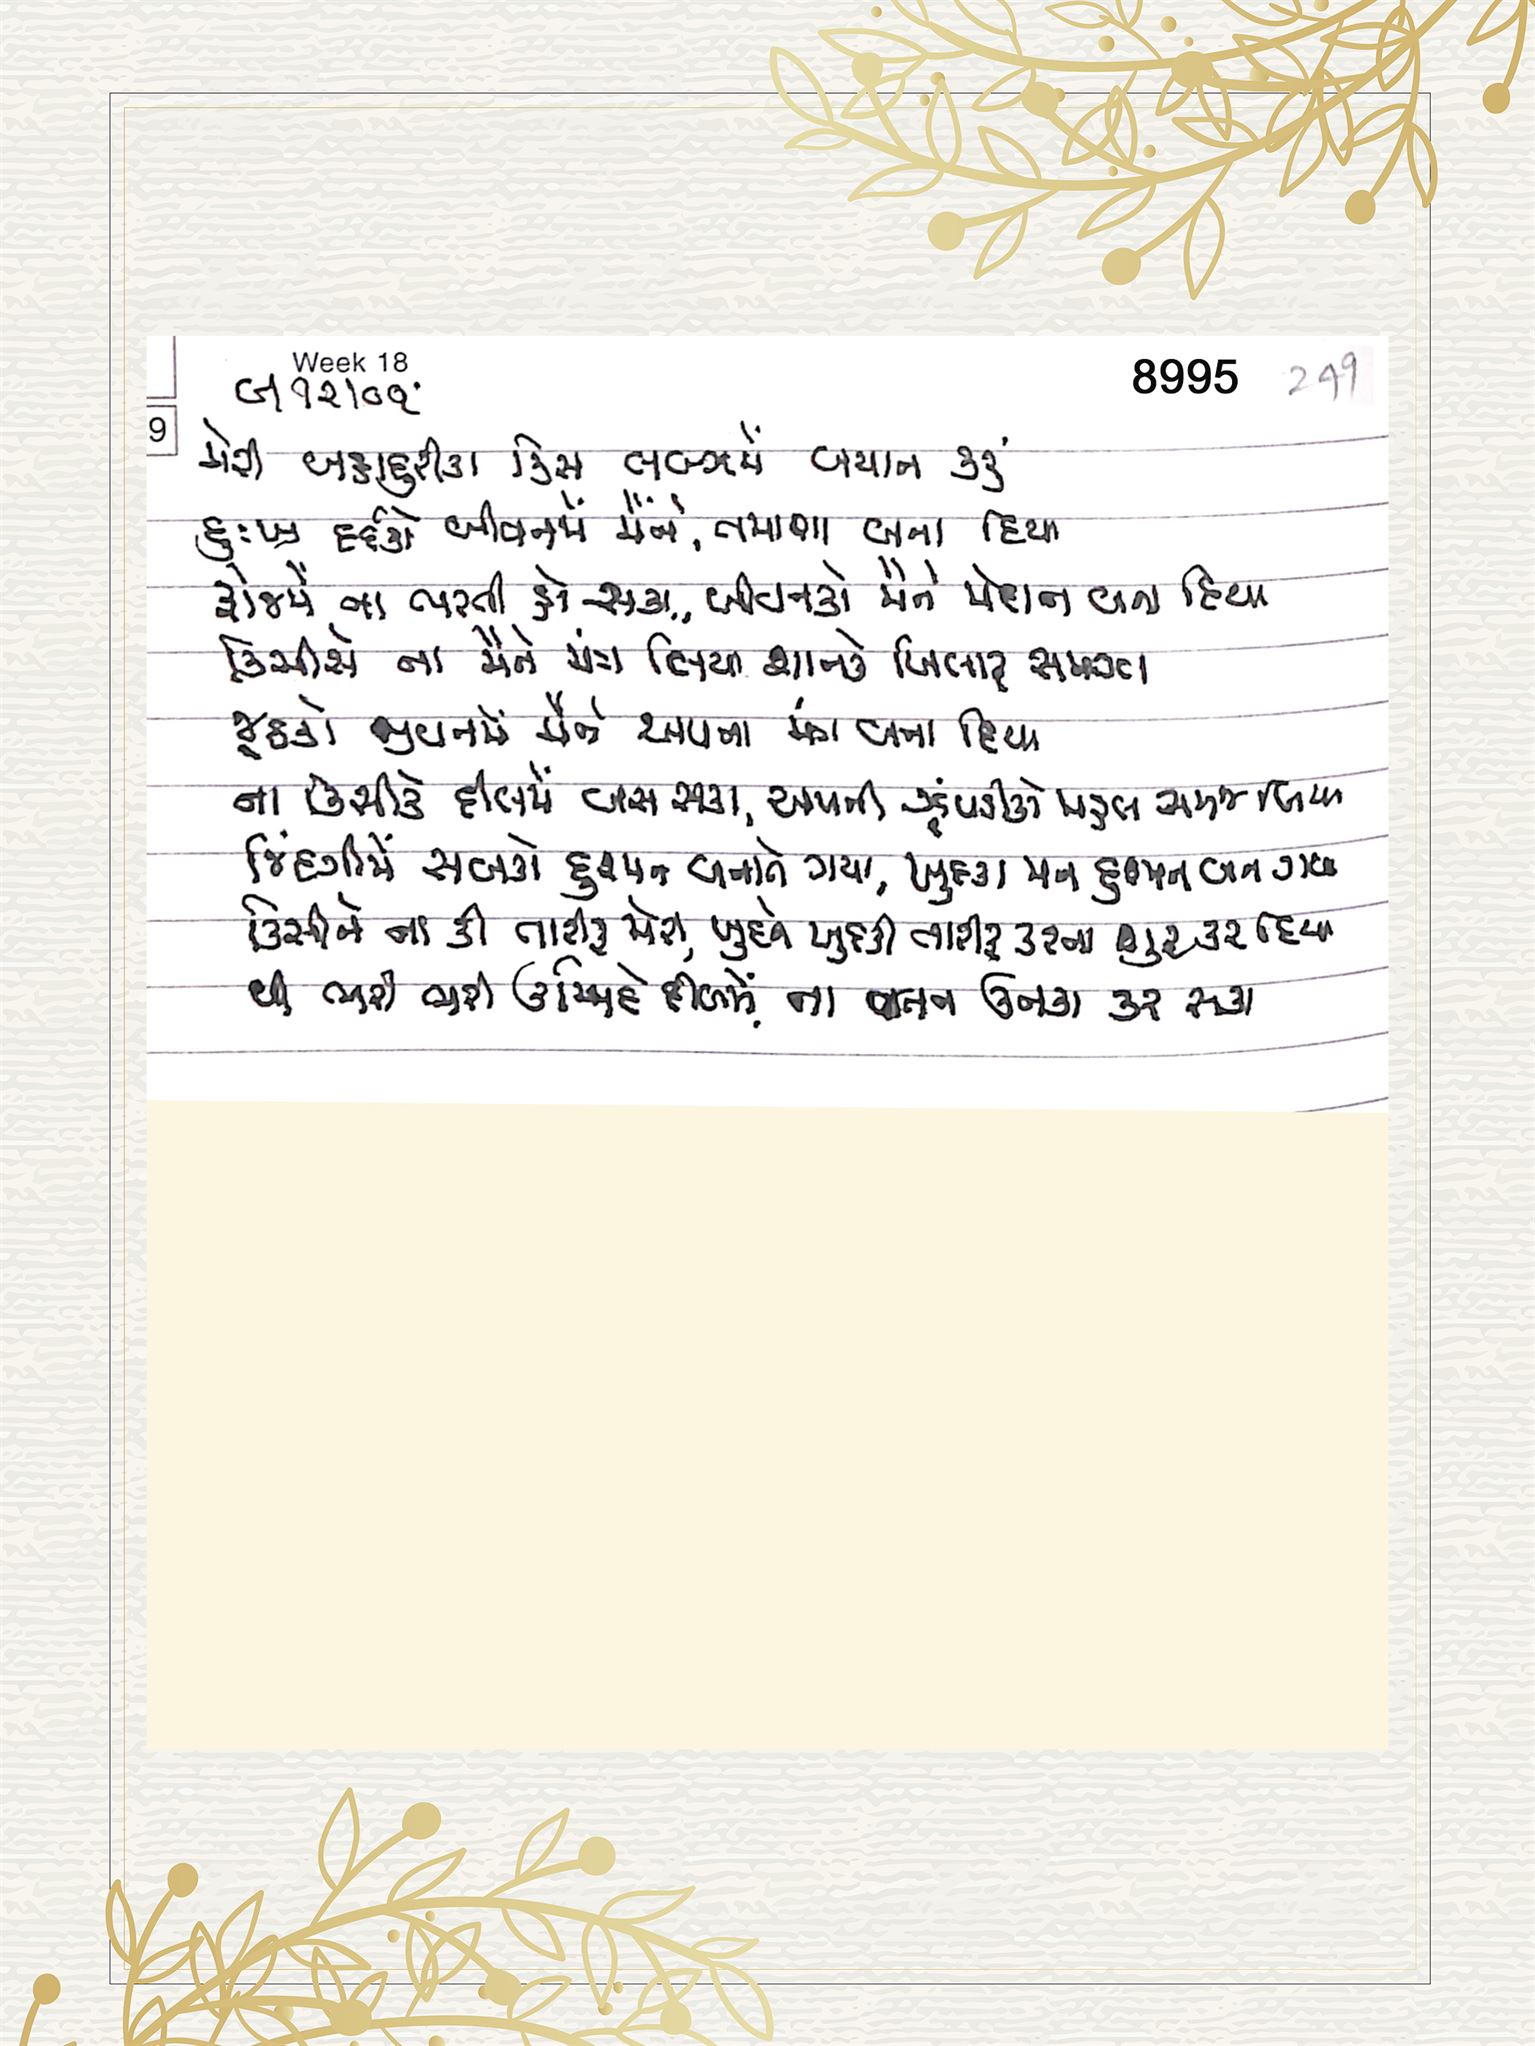 Week 18
8995
249
9
મેરી બહાદુરીકા કિસ લબ્ઝમેં બયાન કરૂં
દુઃખ દર્દકો જીવનમેં મૈંને, તમાશા બના દિયા
ફોજમેં ના ભરતી હો સકા, જીવનકો મૈંને મેદાન બના દિયા
કિસીસે ના મૈંને લિયા શાનકે ખિલાફ સમજા
જૂઠકો જીવનમેં મૈંને અપના બના દિયા
ના કિસીકે દીલમેં બસ સકા, અપની ઝૂંપડીકો મહલ સમજ લિયા
જિંદગીમેં સબકો દુશ્મન બનાતે ગયા, ખુદકા મન દુશ્મન બન ગયા
કિસીને ના કી તારીફ મેરી, ખુદને ખુદકી તારીફ કરના શુરૂ કર દિયા
થી ભારી ભારી ઉમ્મિદે દીલમેં, ના જતન ઉનકા કર સકા